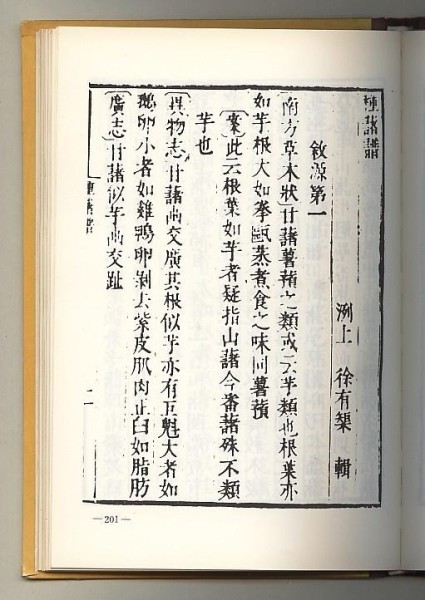 種藷譜
洌上 徐有榘 輯
敘源第一
〔南方草木狀〕甘藷薯蕷之類或云芋類也根葉亦
如芋根大如拳甌蒸煮食之味同薯蕷
〔案〕此云根葉如芋者疑指山藷今番藷殊不類
芋也
〔異物志〕甘藷出交廣其根似芋亦有巨魁大者如
鵝卵小者如雞鴨卵剝去紫皮肌肉正白如脂肪
〔廣志〕甘藷似芋出交趾
種藷譜
一
—201—